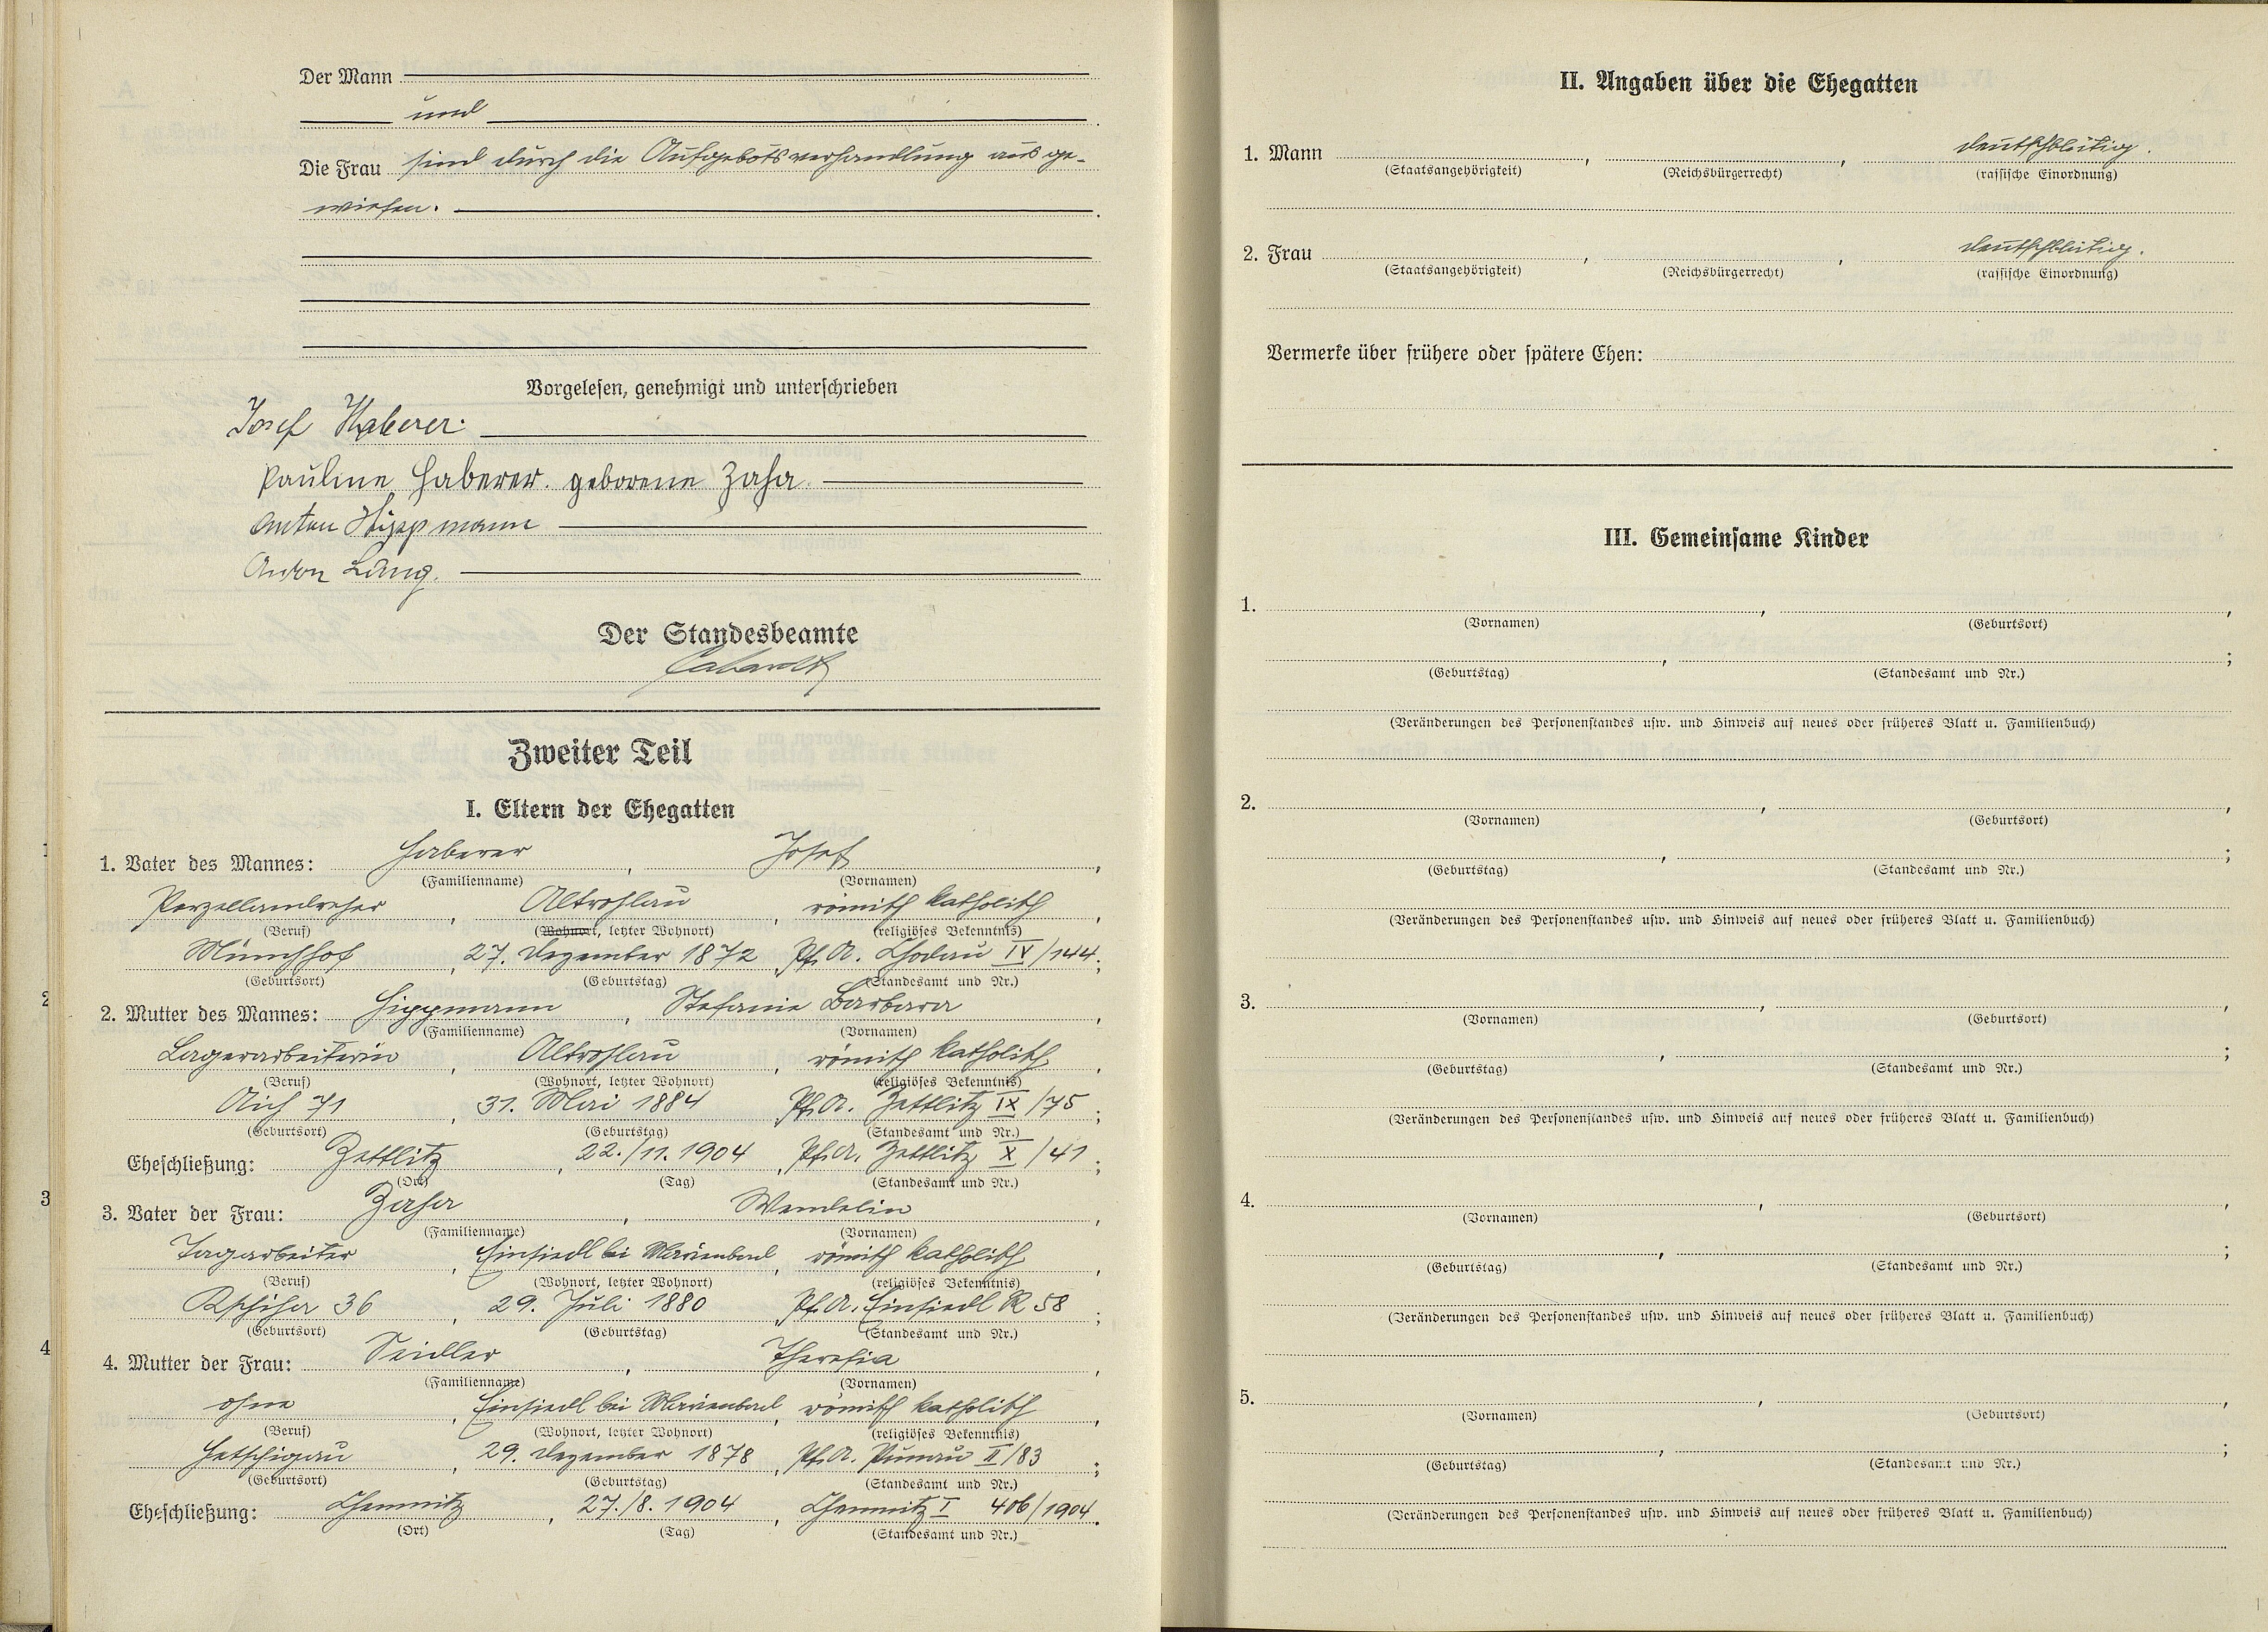 Der Mann
und
Die Frau sind durch die Aufgebotsverhandlung ausge-
wiesen.
Vorgelesen, genehmigt und unterschrieben
Josef Haberer.
Pauline Haberer. geborene Zaha
Anton Hippmann
Anton Lang.
Der Standesbeamte
Zweiter Teil
I. Eltern der Ehegatten
1. Vater des Mannes: Haberer, Josef,
(Familienname) (Vornamen)
Porzellandreher, Altrohlau, römisch katholisch,
(Beruf) (Wohnort, letzter Wohnort) (religiöses Bekenntnis)
Münchhof, 27. Dezember 1872, Pf. A. Chodau IV/144;
(Geburtsort) (Geburtstag) (Standesamt und Nr.)
2. Mutter des Mannes: Hippmann, Stefanie Barbara,
(Familienname) (Vornamen)
Lagerarbeiterin, Altrohlau, römisch katholisch,
(Beruf) (Wohnort, letzter Wohnort) (religiöses Bekenntnis)
Aich 71, 31. Mai 1884 Pf. A. Zettlitz IX/75;
(Geburtsort) (Geburtstag) (Standesamt und Nr.)
Eheschließung: Zettlitz, 22./11. 1904, Pf. A. Zettlitz X/41;
(Ort) (Tag) (Standesamt und Nr.)
3. Vater der Frau: Zaha, Wendelin,
(Familienname) (Vornamen)
Tagarbeiter, Einsiedl bei Marienbad, römisch katholisch,
(Beruf) (Wohnort, letzter Wohnort) (religiöses Bekenntnis)
36, 29. Juli 1880, Pf. A. Einsiedl R 58;
(Geburtsort) (Geburtstag) (Standesamt und Nr.)
4. Mutter der Frau: Seidler, Theresia,
(Familienname) (Vornamen)
ohne, Einsiedl bei Marienbad, römisch katholisch,
(Beruf) (Wohnort, letzter Wohnort) (religiöses Bekenntnis)
Hetschigau, 29. Dezember 1878, Pf. A. Punau II/83;
(Geburtsort) (Geburtstag) (Standesamt und Nr.)
Eheschließung: Chemnitz, 27./8. 1904, Chemnitz I 406/1904.
(Ort) (Tag) (Standesamt und Nr.)
II. Angaben über die Ehegatten
1. Mann , , deutschblütig.
(Staatsangehörigkeit) (Reichsbürgerrecht) (rassische Einordnung)
2. Frau , , deutschblütig.
(Staatsangehörigkeit) (Reichsbürgerrecht) (rassische Einordnung)
Vermerke über frühere oder spätere Ehen:
III. Gemeinsame Kinder
1. , ,
(Vornamen) (Geburtsort)
, ;
(Geburtstag) (Standesamt und Nr.)
(Veränderungen des Personenstandes usw. und Hinweis auf neues oder früheres Blatt u. Familienbuch)
2. , ,
(Vornamen) (Geburtsort)
, ;
(Geburtstag) (Standesamt und Nr.)
(Veränderungen des Personenstandes usw. und Hinweis auf neues oder früheres Blatt u. Familienbuch)
3. , ,
(Vornamen) (Geburtsort)
, ;
(Geburtstag) (Standesamt und Nr.)
(Veränderungen des Personenstandes usw. und Hinweis auf neues oder früheres Blatt u. Familienbuch)
4. , ,
(Vornamen) (Geburtsort)
, ;
(Geburtstag) (Standesamt und Nr.)
(Veränderungen des Personenstandes usw. und Hinweis auf neues oder früheres Blatt u. Familienbuch)
5. , ,
(Vornamen) (Geburtsort)
, ;
(Geburtstag) (Standesamt und Nr.)
(Veränderungen des Personenstandes usw. und Hinweis auf neues oder früheres Blatt u. Familienbuch)